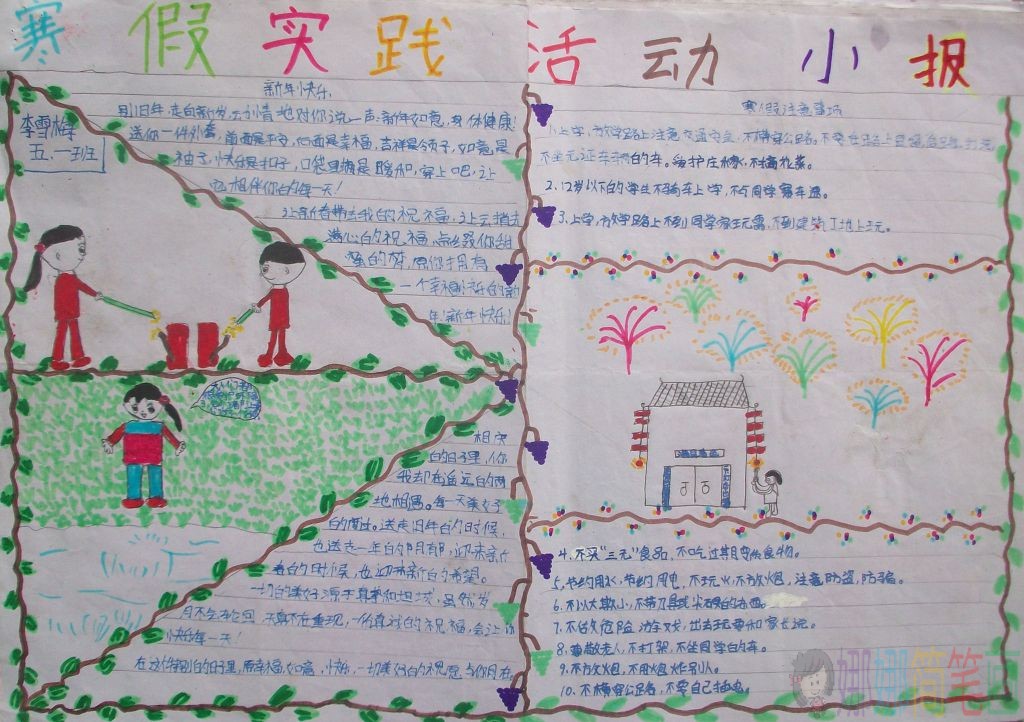 寒假实践活动小报
李雪梅
五.一班
新年快乐.
别旧年,走向新岁,云小青地对你说一声:新年如意,身体健康!
送你一件外套,前面是平安,后面是幸福,吉祥是领子,如意是
袖子,快乐是扣子,口袋里满是暖和,穿上吧,让
它相伴你的每一天!
让新春带去我的祝福,让云捎去
满心的祝福,点缀你甜
蜜的梦,愿你拥有
一个幸福快乐的新
年!新年快乐!
相
的日子里,你
我却在遥远的两
地相遇。每一天
的 送走旧年的时候,
也送走一年的 迎来新
春的时候,也迎来新的希望。
一切的美好源于真挚和坦 虽然岁
月不会轮回,天真不在重现,一份真诚的祝福,会让你
快乐每一天!
在这个特别的日子里,愿幸福,如意,快乐,一切美好的祝愿与你同在.
寒假注意事项
1.上学,放学路上注意交通安全,不横穿公路,不要在路上
不坐无证车辆的车。爱护庄稼,不摘花菜。
2.12岁以下的学生不骑车上学,不与同学赛车速。
3.上学,放学路上不到同学家玩 不到建筑工地上玩。
4.不买“三无”食品,不吃过期变质食物。
5.节约用水,节约用电,不玩火,不放火炮,注意防盗,防骗。
6.不以大欺小,不带刀具或尖石器的东西。
7.不做危险游戏,出去玩要和家长说。
8.尊敬老人,不打架,不坐同学的车。
9.不放火炮,不用火炮炸别人。
10.不横穿公路,不要自己插电。
娜娜简笔画